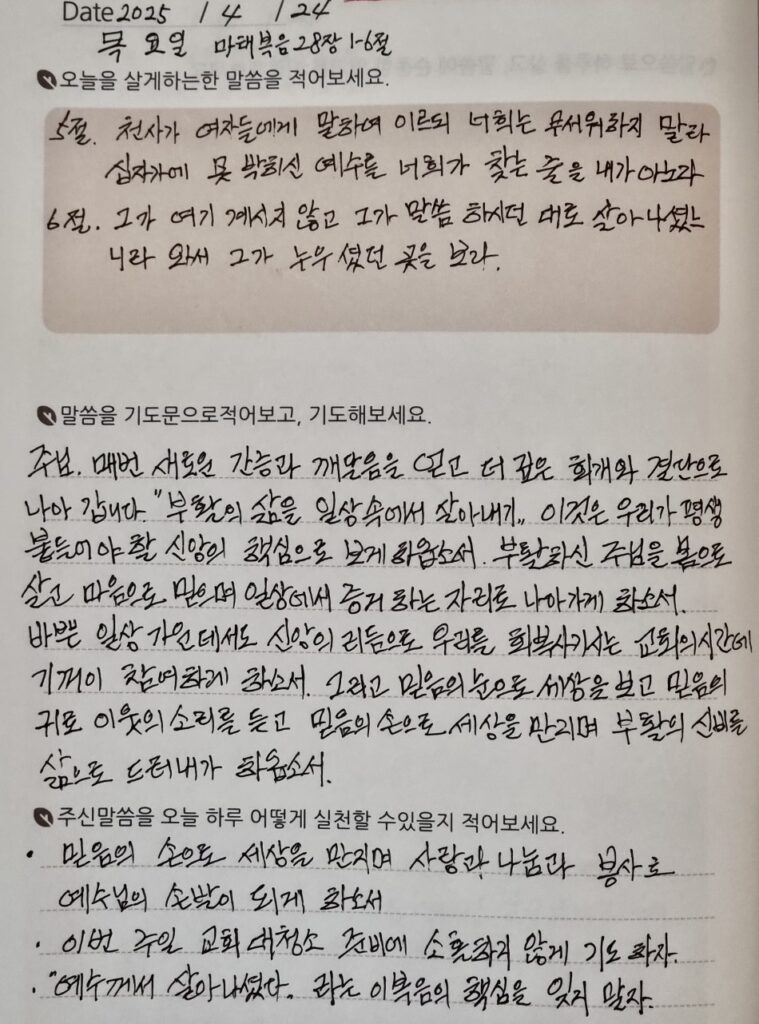 Date 2025 / 4 / 24
목요일 마태복음 28장 1-6절
오늘을 살게하는한 말씀을 적어보세요.
5절. 천사가 여자들에게 말하여 이르되 너희는 무서워하지 말라
십자가에 못 박히신 예수를 너희가 찾는 줄을 내가 아노라
6절. 그가 여기 계시지 않고 그가 말씀 하시던 대로 살아나셨느
니라 와서 그가 누우셨던 곳을 보라.
말씀을 기도문으로적어보고, 기도해보세요.
주님. 매번 새로운 간증과 깨달음을 얻고 더 깊은 회개와 결단으로
나아 갑니다. "부활의 삶을 일상속에서 살아내기" 이것은 우리가 평생
붙들어야 할 신앙의 핵심으로 보게 하옵소서. 부활하신 주님을 봄으로
살고 마음으로 믿으며 일상에서 증거 하는 자리로 나아가게 하소서.
바쁜 일상 가운데서도 신앙의 리듬으로 우리를 회복시키시는 교회의시간에
기꺼이 참여하게 하소서. 그리고 믿음의 눈으로 세상을 보고 믿음의
귀로 이웃의 소리를 듣고 믿음의 손으로 세상을 만지며 부활의 신비를
삶으로 드러내가 하옵소서.
주신말씀을 오늘 하루 어떻게 실천할 수있을지 적어보세요.
· 믿음의 손으로 세상을 만지며 사랑과 나눔과 봉사로
예수님의 손발이 되게 하소서
· 이번 주일 교회 대청소 준비에 소홀하지 않게 기도 하자.
· "예수께서 살아나셨다. 라는 이복음의 핵심을 잊지 말자.